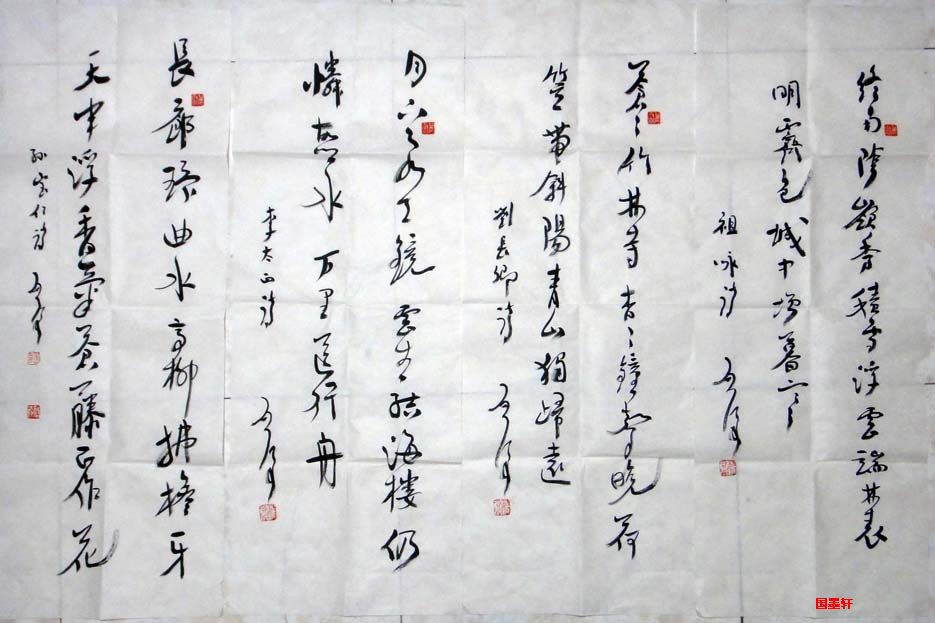 終南陰嶺秀積雪浮雲端林表
明霽色城中增暮寒
祖咏詩
蒼々竹林寺杳々鐘聲晚荷
笠帶斜陽青山獨歸遠
劉長卿詩
月下飛天鏡雲生結海楼仍
憐故水万里送行舟
李太白詩
長廊環曲水高柳拂檐牙
天半浮香氣蒼藤正作花
国墨轩